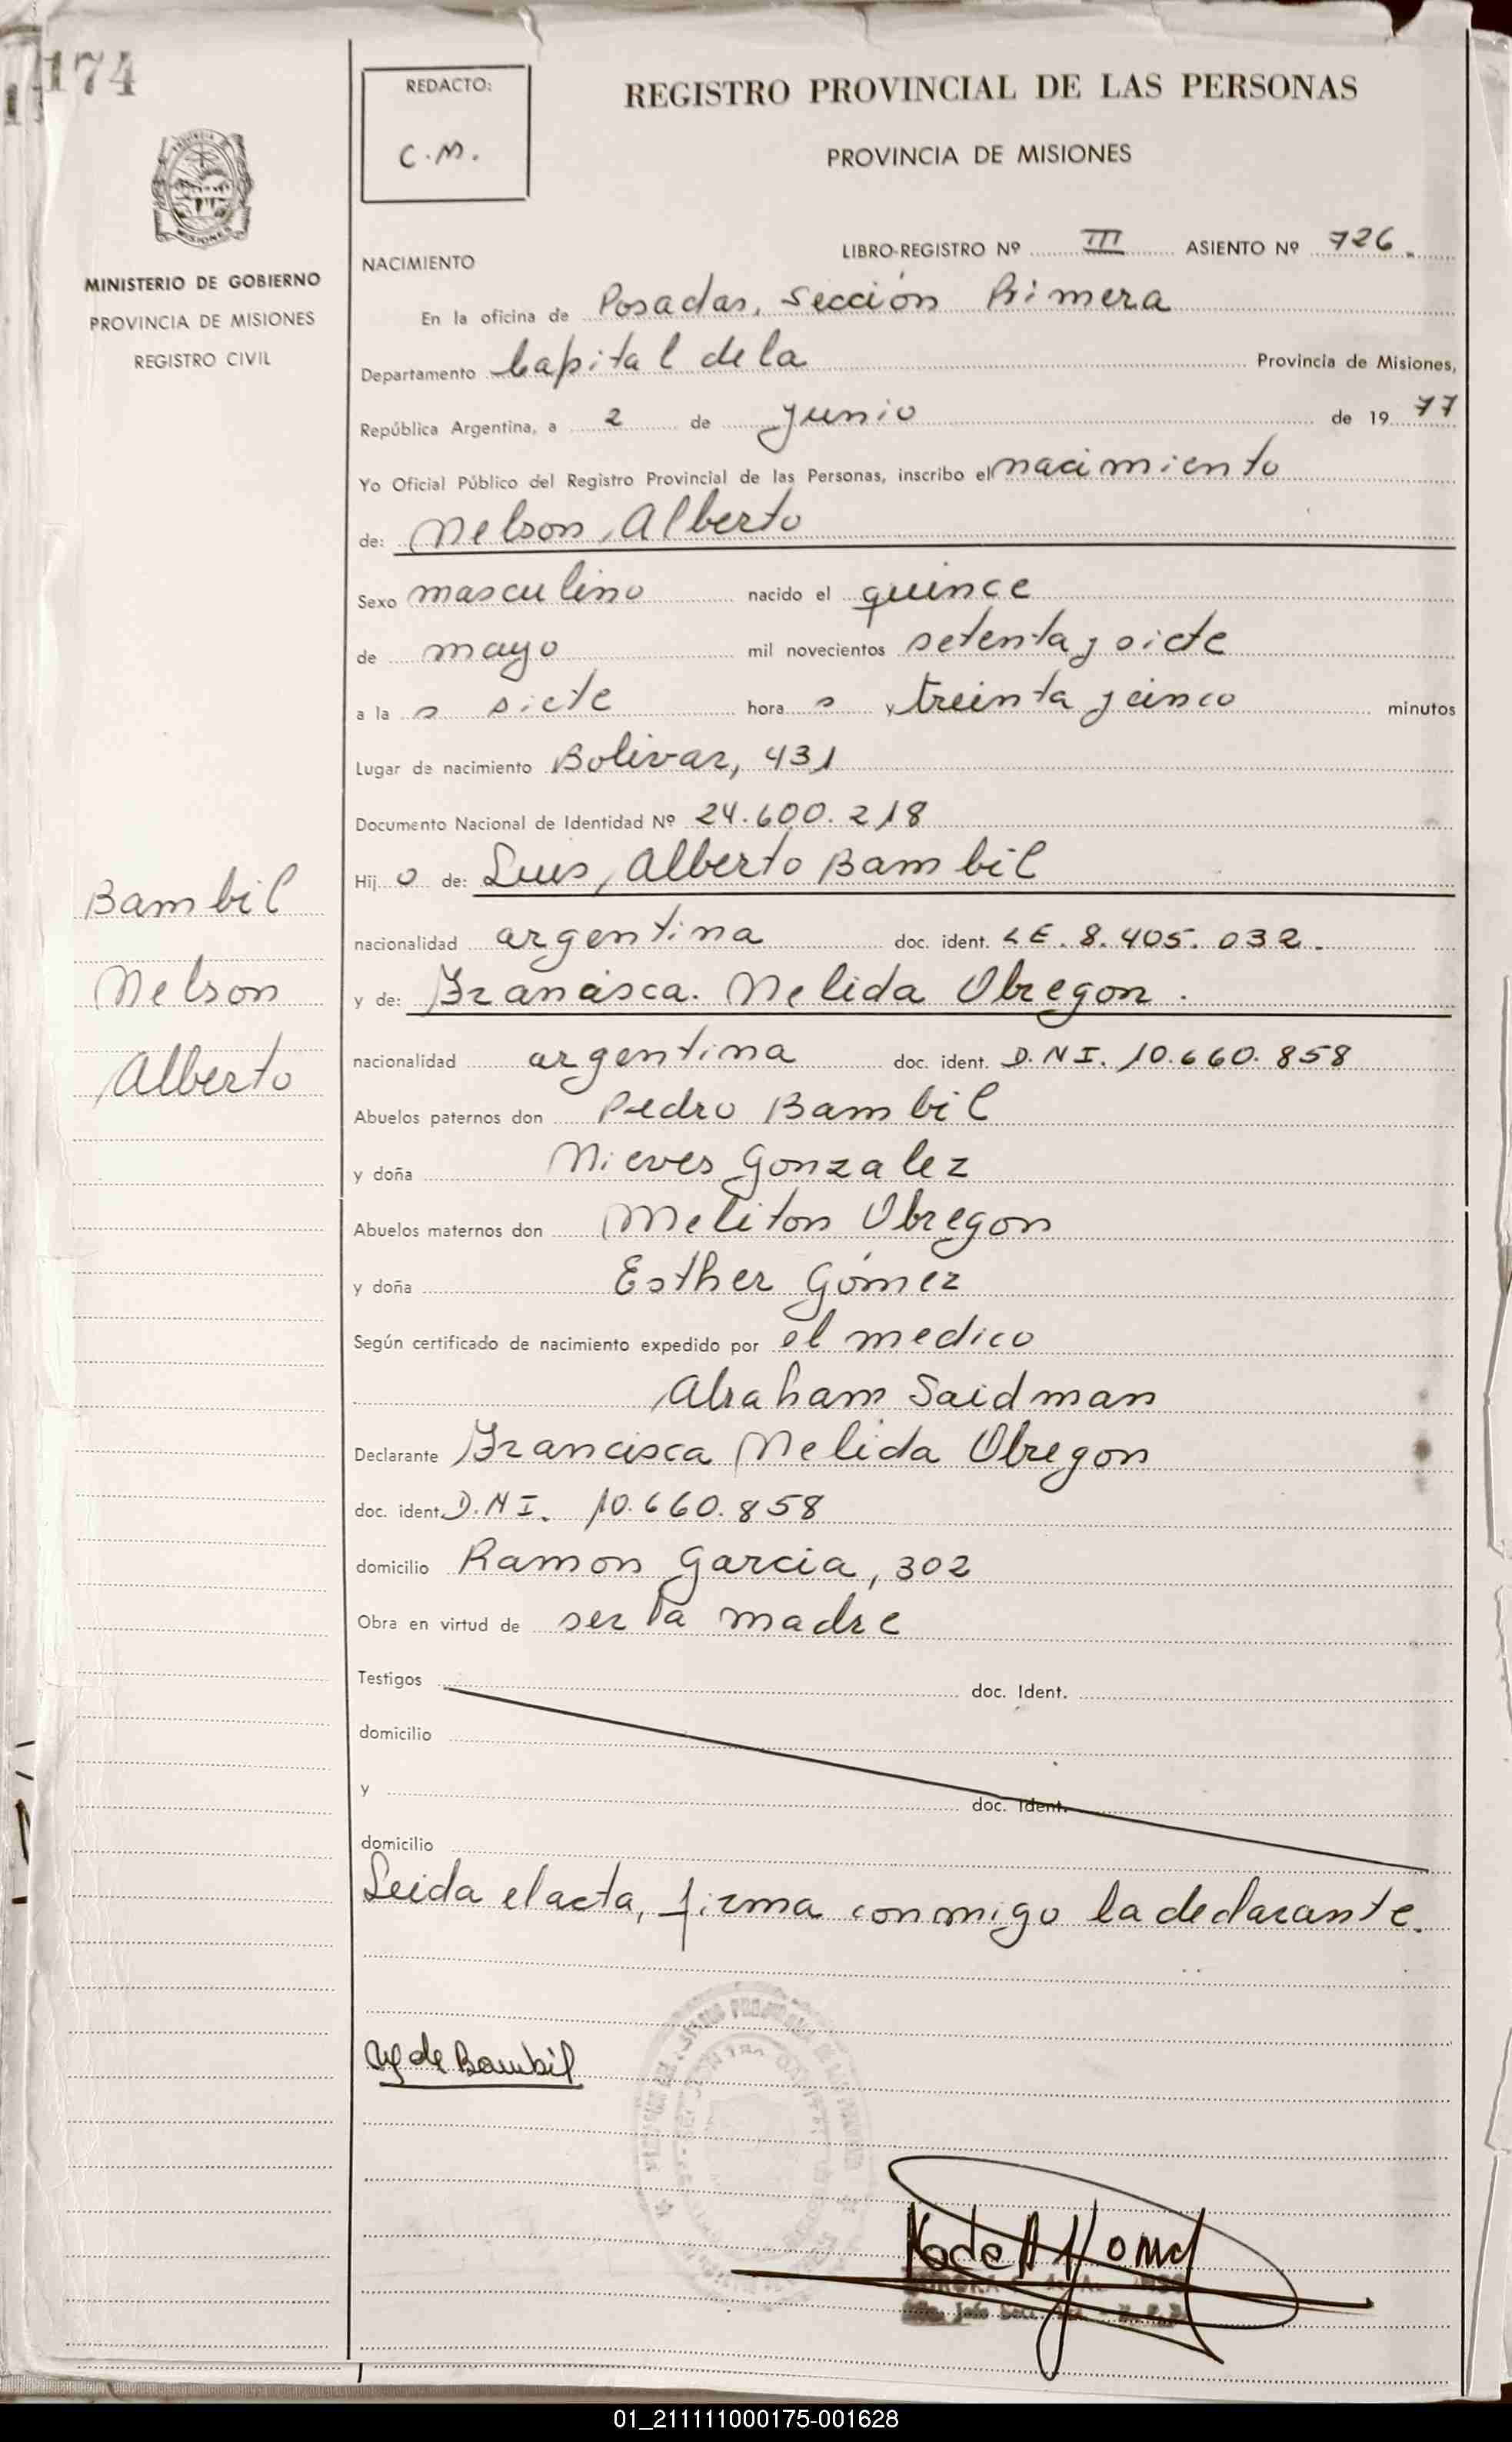 174
REDACTO:
C.M.
REGISTRO PROVINCIAL DE LAS PERSONAS
PROVINCIA DE MISIONES
MISIONES
MINISTERIO DE GOBIERNO
PROVINCIA DE MISIONES
REGISTRO CIVIL
LIBRO-REGISTRO Nº III ASIENTO Nº 726.
NACIMIENTO
En la oficina de Posadas, Sección Primera
Departamento Capital de la Provincia de Misiones,
República Argentina, a 2 de Junio de 19 77
Yo Oficial Público del Registro Provincial de las Personas, inscribo el nacimiento
de: Nelson, Alberto
Sexo masculino nacido el quince
de mayo mil novecientos setenta y siete
a la s siete hora s y treinta y cinco minutos
Lugar de nacimiento Bolivar, 431
Documento Nacional de Identidad Nº 24.600.218
Hij o de: Luis, Alberto Bambil
Bambil
nacionalidad argentina doc. ident. LE. 8.405.032.
Nelson
y de: Francisca. Nelida Obregon.
Alberto
nacionalidad argentina doc. ident. D.N.I. 10.660.858
Abuelos paternos don Pedro Bambil
y doña Nieves Gonzalez
Abuelos maternos don Meliton Obregon
y doña Esther Gómez
Según certificado de nacimiento expedido por el medico
Abraham Saidman
Declarante Francisca Nelida Obregon
doc. ident. D.N.I. 10.660.858
domicilio Ramon Garcia, 302
Obra en virtud de ser la madre
Testigos doc. Ident.
domicilio
y doc. Ident.
domicilio
Leida el acta, firma conmigo la declarante.
de Bambil
01_211111000175-001628